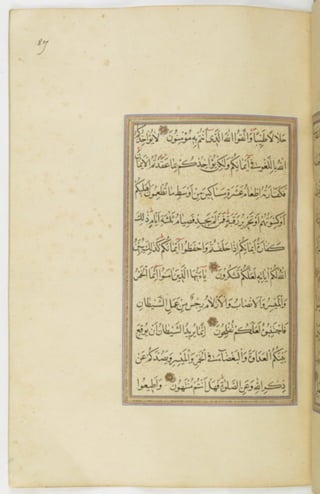 87
حَلَالًا طَيِّبًا وَاتَّقُوا اللَّهَ الَّذِي أَنْتُمْ بِهِ مُؤْمِنُونَ لَا يُؤَاخِذُكُمُ
اللَّهُ بِاللَّغْوِ فِي أَيْمَانِكُمْ وَلَكِنْ يُؤَاخِذُكُمْ بِمَا عَقَّدْتُمُ الْأَيْمَانَ
فَكَفَّارَتُهُ إِطْعَامُ عَشَرَةِ مَسَاكِينَ مِنْ أَوْسَطِ مَا تُطْعِمُونَ أَهْلِيكُمْ
أَوْ كِسْوَتُهُمْ أَوْ تَحْرِيرُ رَقَبَةٍ فَمَنْ لَمْ يَجِدْ فَصِيَامُ ثَلَثَةِ أَيَّامٍ ذَلِكَ
كَفَّارَةُ أَيْمَانِكُمْ إِذَا حَلَفْتُمْ وَاحْفَظُوا أَيْمَانَكُمْ كَذَلِكَ يُبَيِّنُ
اللَّهُ لَكُمْ آيَاتِهِ لَعَلَّكُمْ تَشْكُرُونَ يَا أَيُّهَا الَّذِينَ آمَنُوا إِنَّمَا الْخَمْرُ
وَالْمَيْسِرُ وَالْأَنْصَابُ وَالْأَزْلَامُ رِجْسٌ مِنْ عَمَلِ الشَّيْطَانِ
فَاجْتَنِبُوهُ لَعَلَّكُمْ تُفْلِحُونَ إِنَّمَا يُرِيدُ الشَّيْطَانُ أَنْ يُوقِعَ
بَيْنَكُمُ الْعَدَاوَةَ وَالْبَغْضَاءَ فِي الْخَمْرِ وَالْمَيْسِرِ وَيَصُدَّكُمْ عَنْ
ذِكْرِ اللَّهِ وَعَنِ الصَّلَوةِ فَهَلْ أَنْتُمْ مُنْتَهُونَ وَأَطِيعُوا